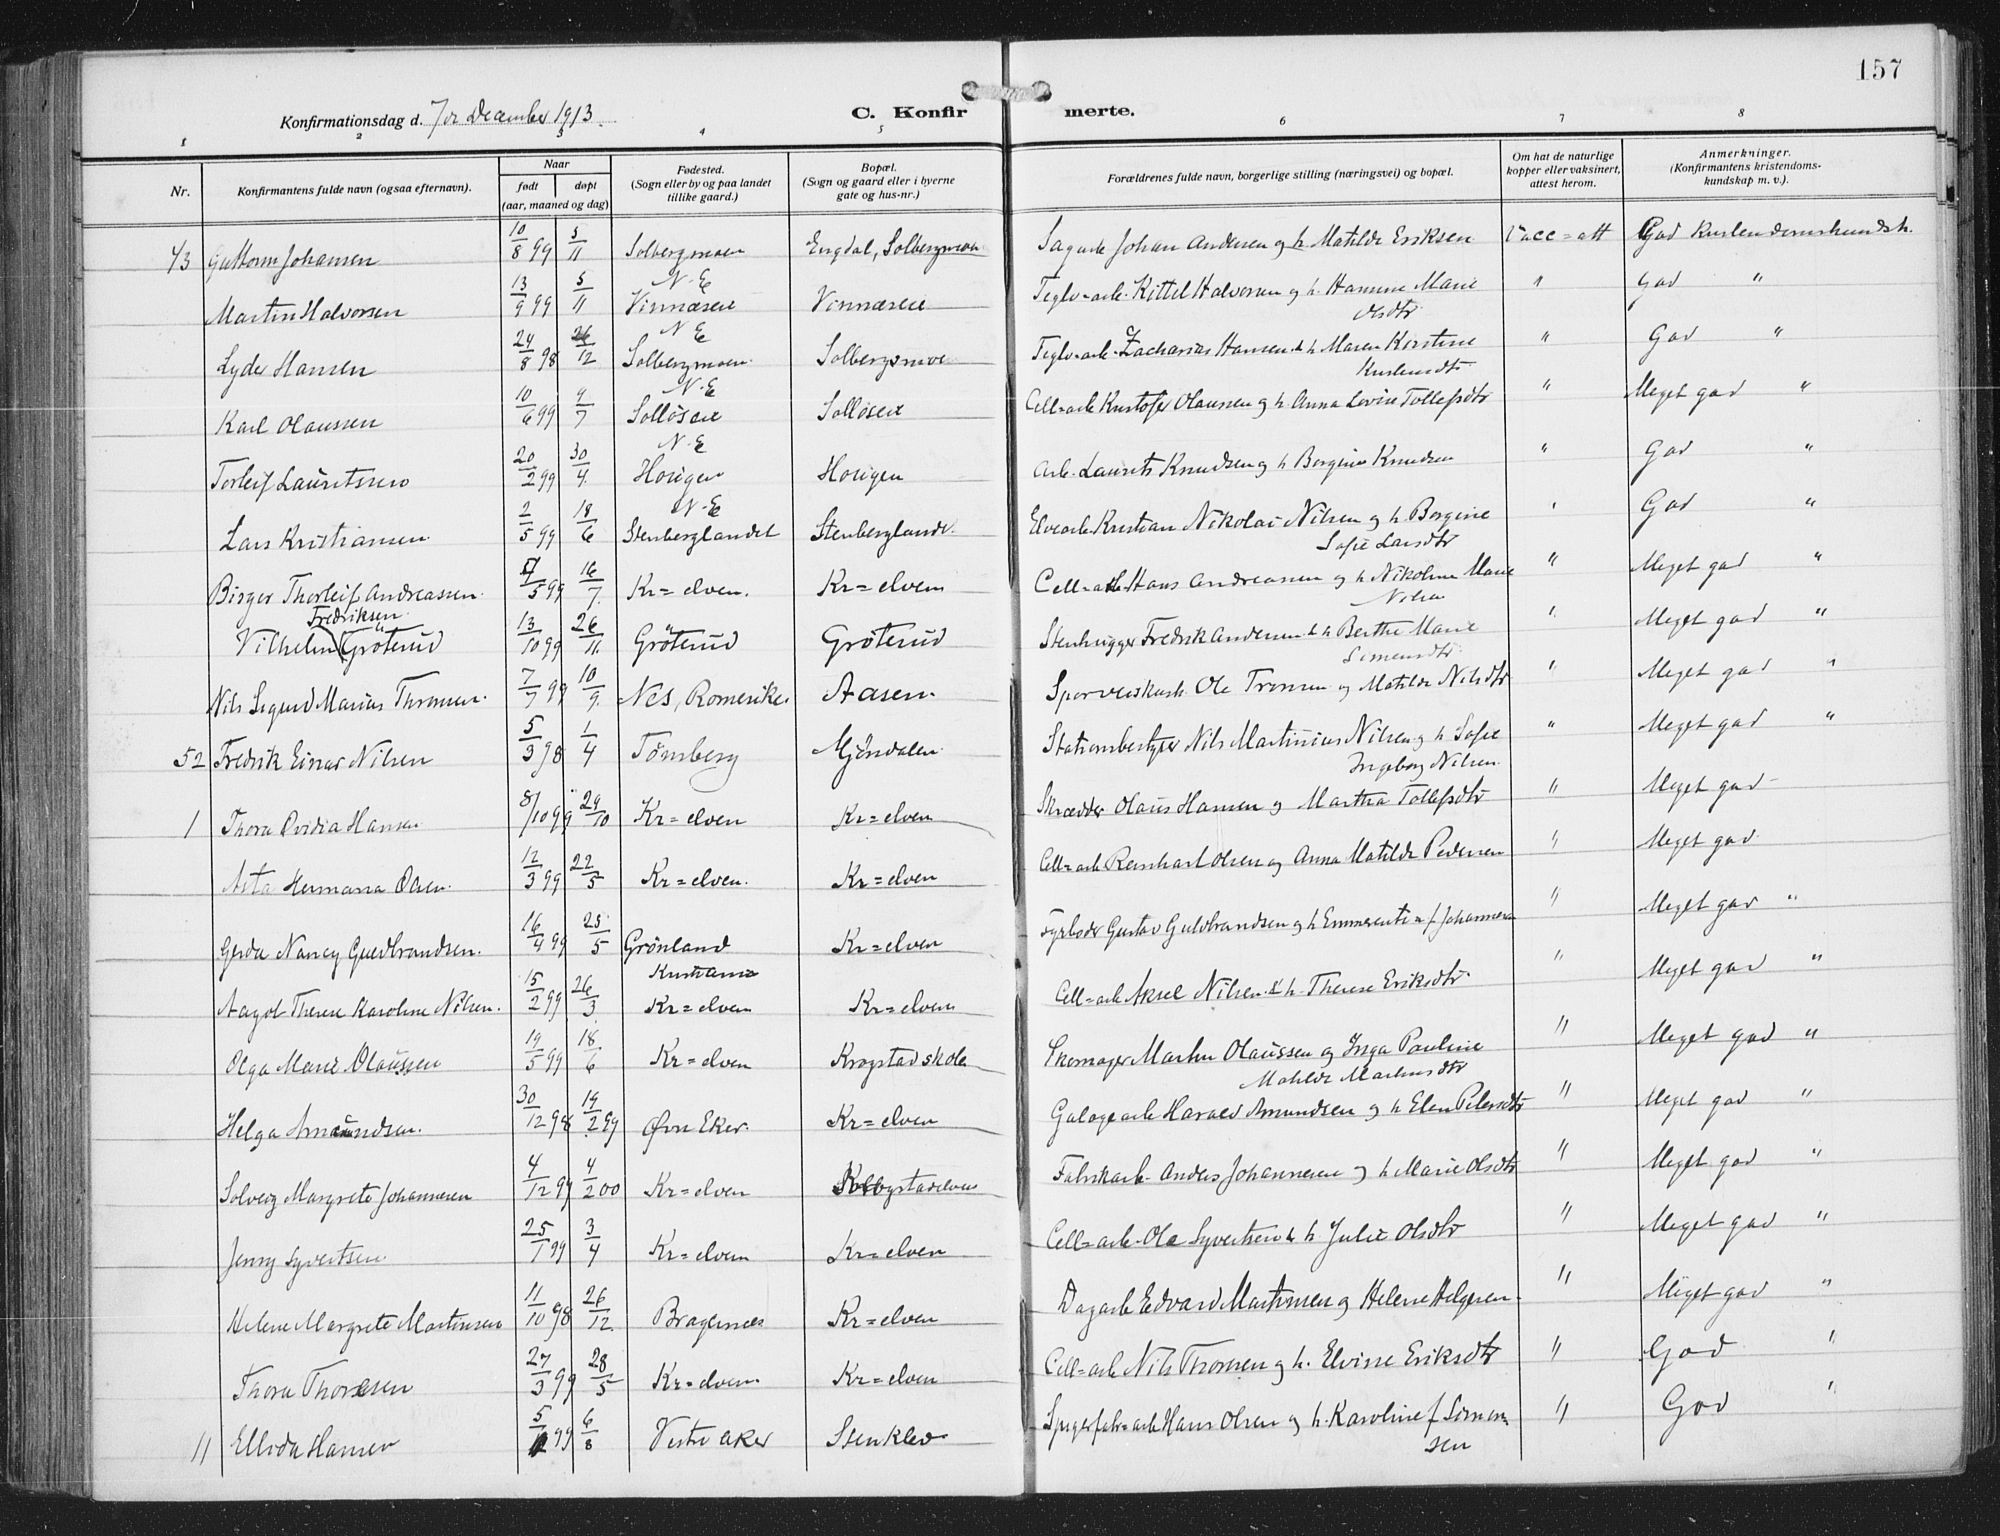 157
Konfirmationsdag d. 7de December 1913.
C. Konfirmerte.
1 2 3 4 5 6 7 8
Nr. Konfirmantens fulde navn (ogsaa efternavn). Naar født døpt (aar, maaned og dag) Fødested. (Sogn eller by og paa landet tillike gaard.) Bopæl. (Sogn og gaard eller i byerne gate og hus-nr.) Forældrenes fulde navn, borgerlige stilling (næringsvei) og bopæl. Om hat de naturlige kopper eller vaksinert, attest herom. Anmerkninger. (Konfirmantens kristendomskundskap m. v.).
43 Guttorm Johansen 10/8 99 5/11 Solbergmoen Engdal, Solbergmoen Sagarb Johan Andersen og h. Matilde Eriksen Vacc=att God Kristendomskundsk.
Martin Halvorsen 13/9 99 5/11 N.E Vinnæseie Vinnæseie Teglv=arb. Kittel Halvorsen og h. Hannine Marie Olsdtr " God "
Lyder Hansen 24/8 98 26/12 N.E Solbergmoen Solbergsmoe Teglv=arb. Zacharias Hansen & h Maren Kirstine " God "
Karl Olaussen 10/6 99 9/7 N.E Solløseie Solløseie Cell=arb Kristofer Olaussen og h. Anna Lovise Tollefsdtr " Meget god "
Torleif Lauritsen 20/2 99 30/4 N.E Horigen Horigen Arb. Laurits Knudsen og h Borgine Knudsen " God "
Lars Kristiansen 2/5 99 18/6 N.E Stenberglandet Stenberglandt. Elvearb Kristian Nikolai Nilsen og h. Borgine Sofie Larsdtr " God "
Birger Thorleif Andreassen. /5 99 16/7. Kr=elven. Kr=elven Cell=arb Hans Andreassen og h Nikoline Marie Nilsen " Meget god "
Vilhelm (Fredriksen Grøterud 13/10 99 26/11. Grøterud Grøterud Stenhugger Fredrik Andersen & h Berthe Marie Simensdtr " Meget god "
Nils Sigurd Marius Thronsen. 7/7 99 10/9. Nes, Romerike. Aasen. Sporveiskarb. Ole Tronsen og Matilde Nilsdtr " Meget god "
52 Fredrik Einar Nilsen 5/3 98 1/4 Tønsberg Mjöndalen Stationsbestyrer Nils Martinius Nilsen og h Sofie Ingeborg Nilsen. " Meget god "
1 Thora Ovidia Hansen 8/10 99 29/10 Kr=elven Kr=elven Skrædder Olaus Hansen og Martha Tollefsdtr " Meget god
Asta Hermana Olsen. 12/3 99 22/5 Kr=elven. Kr=elven Cell=arb Reinhart Olsen og Anna Matilde Pedersen " Meget god
Gerda Nancy Guldbrandsen. 16/4 99 25/5 Grønland Kristiania Kr=elven Fyrbøder Gustav Guldbrandsen og h Emmerentia f Johannesen " Meget god "
Aagot Therese Karoline Nilsen. 15/2 99 26/3 Kr=elven Kr=elven Cell=arb Aksel Nilsen & h. Therese Eriksdtr " Meget god "
Olga Marie Olaussen 19/5 99 18/6 Kr=elven Krogstad skole Skomager Martin Olaussen og Inga Pauline Matilde Martinsdtr " Meget god "
Helga Amundsen. 30/12 98 19/2 99 Øvre Eker. Kr=elven Galogearb Harald Amundsen og h Elen Petersdtr " Meget god "
Solveig Margrete Johannesen 4/12 99 4/2 00 Kr=elven Krogstadelven Fabrikarb. Anders Johannesen og h Marie Olsdtr " Meget god "
Jenny Syvertsen 25/1 99 3/4 Kr=elven Kr=elven Cell=arb Ole Syvertsen & h Julie Olsdtr " Meget god "
Helene Margrete Martinsen 11/10 98 26/12. Bragernes Kr=elven Dagarb Edvard Martinsen og Helene Helgesen. " Meget god "
Thora Thoresen 27/3 99 28/5 Kr=elven. Kr=elven Cell=arb Nils Thoresen og h. Elvine Eriksdtr " God "
11 Ellida Hansen 5/ 99 6/8 Vestre Aker Stenklev Spigerfab=arb Hans Olsen og h. Karoline f Simensen " God "